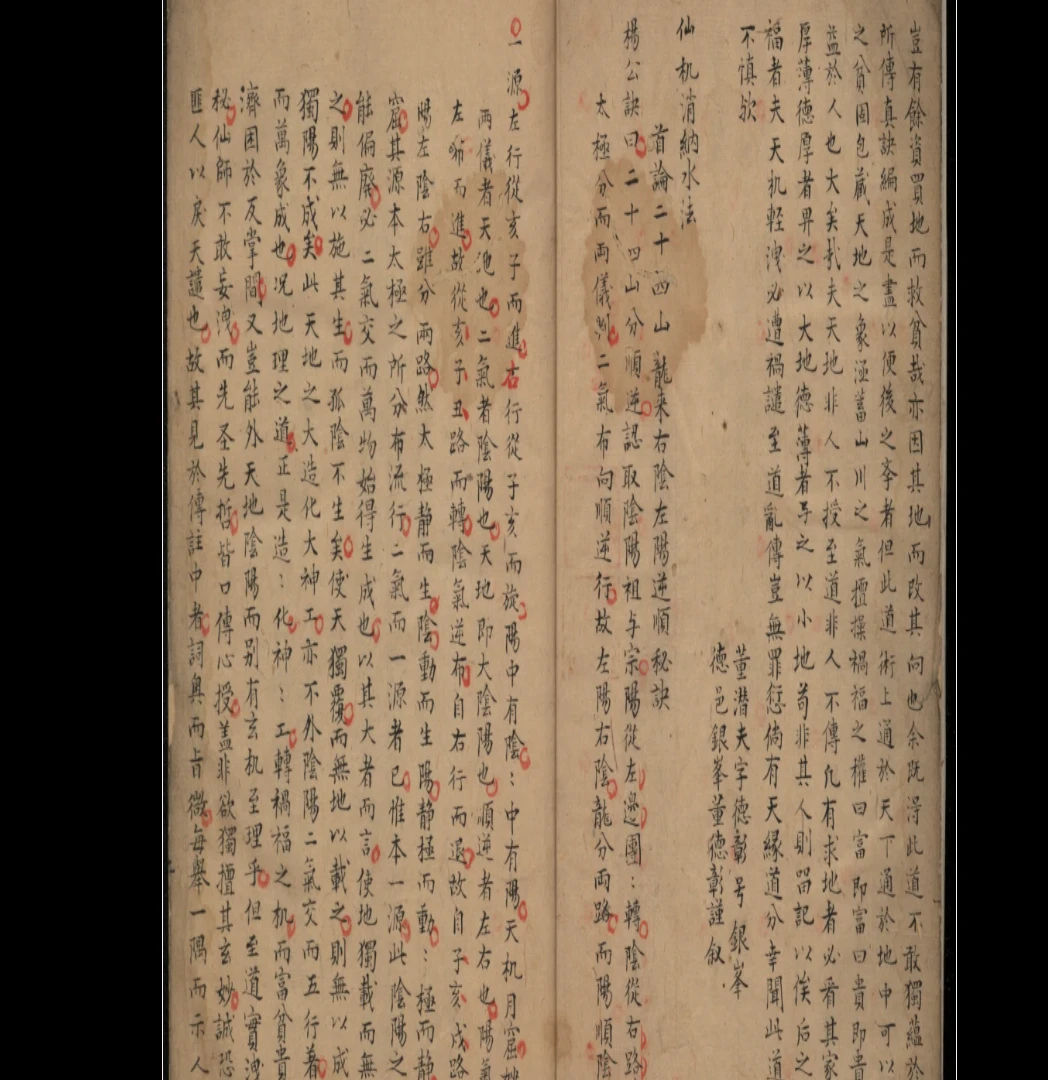 豈有餘資買地而救貧哉亦因其地而改其向也余既淂此道不敢獨蘊於
所傳真訣編成是盡以便後之孝者但此道術上通於天下通於地中可以
之貧固包藏天地之象涵蓄山川之氣擅操禍福之權曰富即富曰貴即貴
益於人也大矣哉夫天地非人不授至道非人不傳凢有求地者必看其家
厚薄德厚者畀之以大地德薄者予之以小地苟非其人則畱記以俟后之
福者夫天机輕洩必遭禍譴至道亂傳豈無罪愆倘有天緣道分幸聞此道
不慎欤
董潜夫字德彰号銀峯
德邑銀峯董德彰謹叙
仙机消納水法
首論二十四山龍来右陰左陽逆順秘訣
楊公訣曰二十四山分順逆認取陰陽祖与宗陽從左邊團：轉陰從右路
太極分而両儀判二氣布向順逆行故左陽右陰龍分両路而陽順陰
一源左行從亥子而進右行從子亥而旋陽中有陰：中有陽天机月窟
両儀者天池也二氣者陰陽也天地即大陰陽也順逆者左右也陽氣
左啣而進故從亥子丑路而轉陰氣逆布自右行而退故自子亥戌路
陽左陰右雖分両路然太極静而生陰動而生陽静極而動：極而静
窟其源本太極之所分布流行二氣而一源者已惟本一源此陰陽之
能偏廢必二氣交而萬物始得生成也以其大者而言使地獨載而無
之則無以施其生而孤陰不生矣使天獨覆而無地以載之則無以成
獨陽不成矣此天地之大造化大神工亦不外陰陽二氣交而五行著
而萬象成也况地理之道正是造：化神：工轉禍福之机而富貧貴
濟困於反掌間又豈能外天地陰陽而别有玄机至理乎但至道實洩
秘仙師不敢妄洩而先圣先哲皆口傳心授盖非欲獨擅其玄妙誠恐
匪人以戾天譴也故其見於傳註中者詞奥而旨微每舉一隅而示人